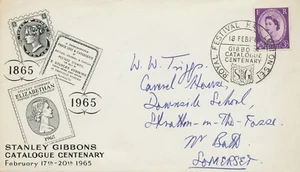 1865
1965
ELIZABETHAN
STANLEY GIBBONS
CATALOGUE CENTENARY
February 17th-20th 1965
ROYAL FESTIVAL
18 FEB
GIBBONS
CATALOGUE
CENTENARY
W. W. Tripp.
Caverel House,
Downside School,
Stratton-on-the-Fosse.
Nr Bath
SOMERSET